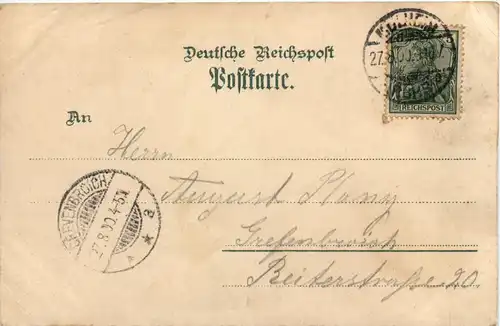 Deutsche Reichspost
Postkarte.
27.8.00.
REICHSPOST
An
Herrn
August
GREVENBROICH
27.8.00.4-5N.
* * a
Grefenbroich
Reiterstraße 20.